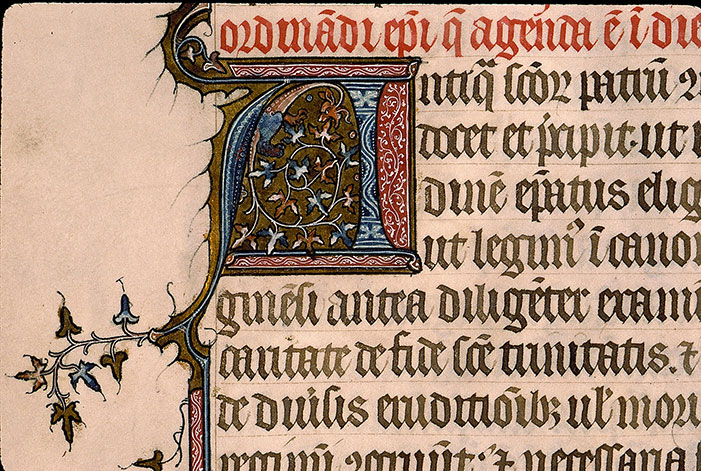 ordinādi ep̄i q̄ agenda ē ī die
Antiq̄ scōꝝ patrū
docet et p̄cipit ut
dinē ep̄atus elig
ut legimꝰ ī canon
ginēsi antea diligēter exami
caritate de fide scē trinitatis. ⁊
de diu̇sis eruditiōibꝫ ul̓ mori
⁊ necessaria